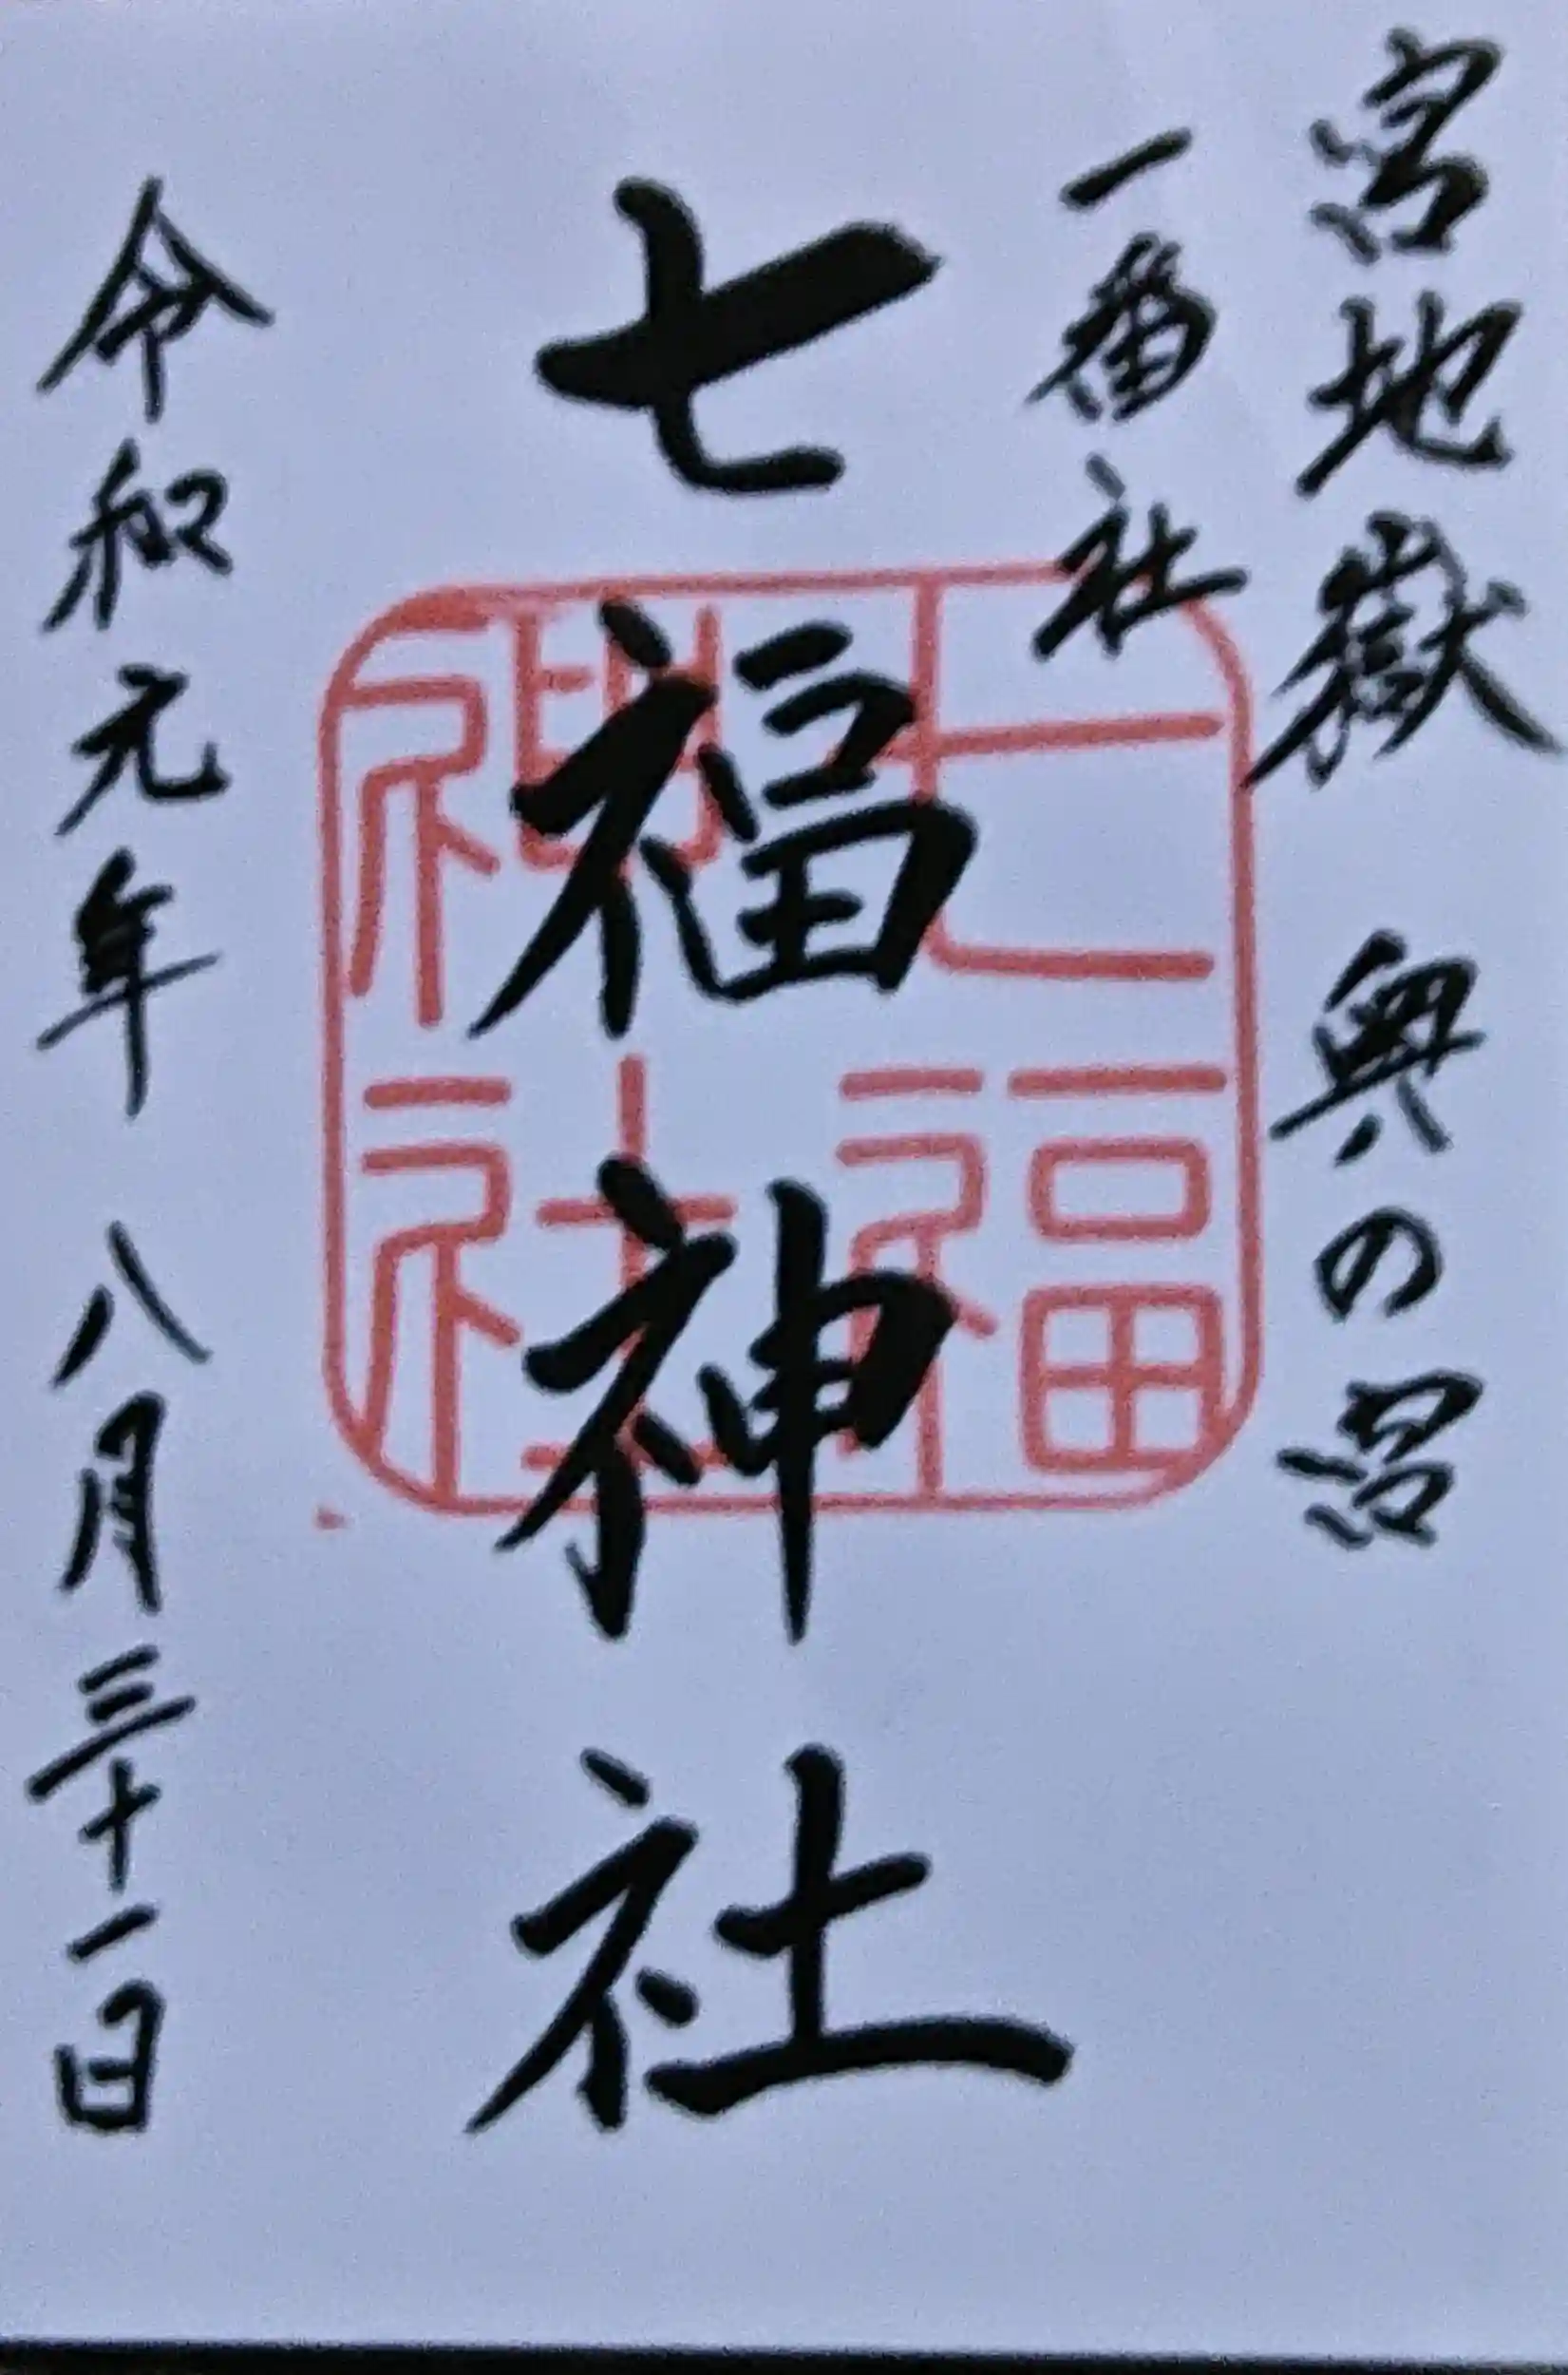 宮地嶽 奥の宮
一番社
七福神社
七福
神社
令和元年 八月三十一日